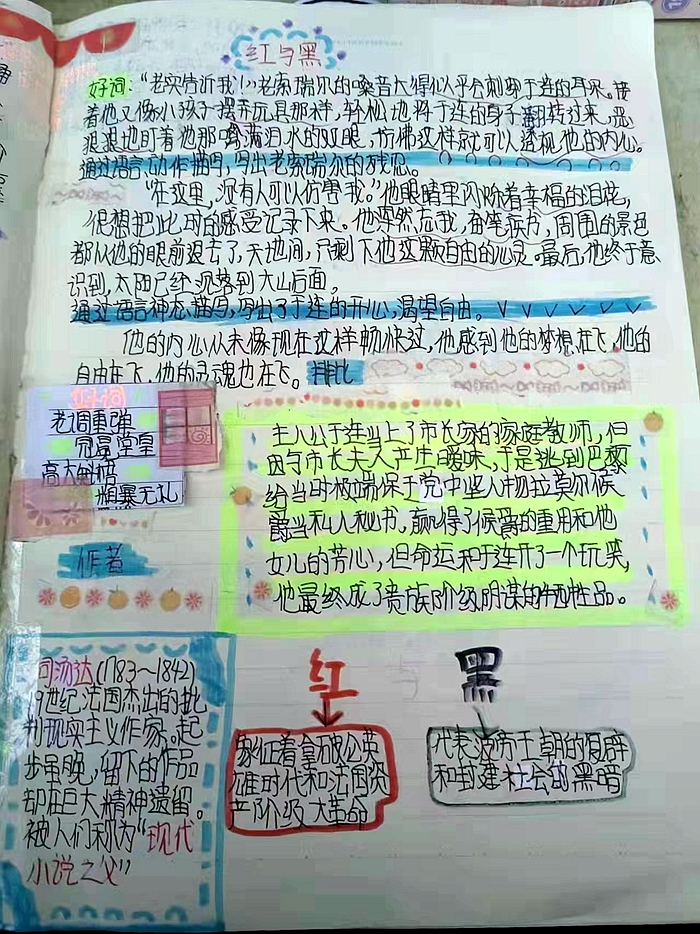 红与黑
好词:“老实告诉我!”老索瑞尔的嗓音大得似乎会刺穿于连的耳朵。接
着他又像小孩子摆弄玩具那样,轻松地将于连的身子翻转过来,恶
狠狠地盯着他那噙满泪水的双眼,仿佛这样就可以透视他的内心。
通过语言动作描写,写出老索瑞尔的残忍。
“在这里,没有人可以伤害我。”他眼睛里闪烁着幸福的泪花,
很想把此时的感受记录下来。他浑然忘我,奋笔疾书,周围的景色
都从他的眼前退去了,天地间,只剩下他这颗自由的心灵。最后,他终于意
识到,太阳已经沉落到大山后面。
通过语言神态描写,写出了于连的开心,渴望自由。
他的内心从未像现在这样畅快过,他感到他的梦想在飞,他的
自由在飞,他的灵魂也在飞。排比
好词
老调重弹
冠冕堂皇
高大魁梧
粗暴无礼
主人公于连当上了市长家的家庭教师,但
因与市长夫人产生暧昧,于是逃到巴黎
给当时极端保王党中坚人物拉莫尔候
爵当私人秘书,赢得了候爵的重用和他
女儿的芳心,但命运和于连开了一个玩笑,
他最终成了贵族阶级阴谋的牺牲品。
作者
司汤达(1783~1842)
19世纪法国杰出的批
判现实主义作家。起
步虽晚,留下的作品
却在巨大精神遗留。
被人们称为“现代
小说之父”
红
与
黑
象征着拿破仑英
雄时代和法国资
产阶级大革命
代表波旁王朝的复辟
和封建社会的黑暗